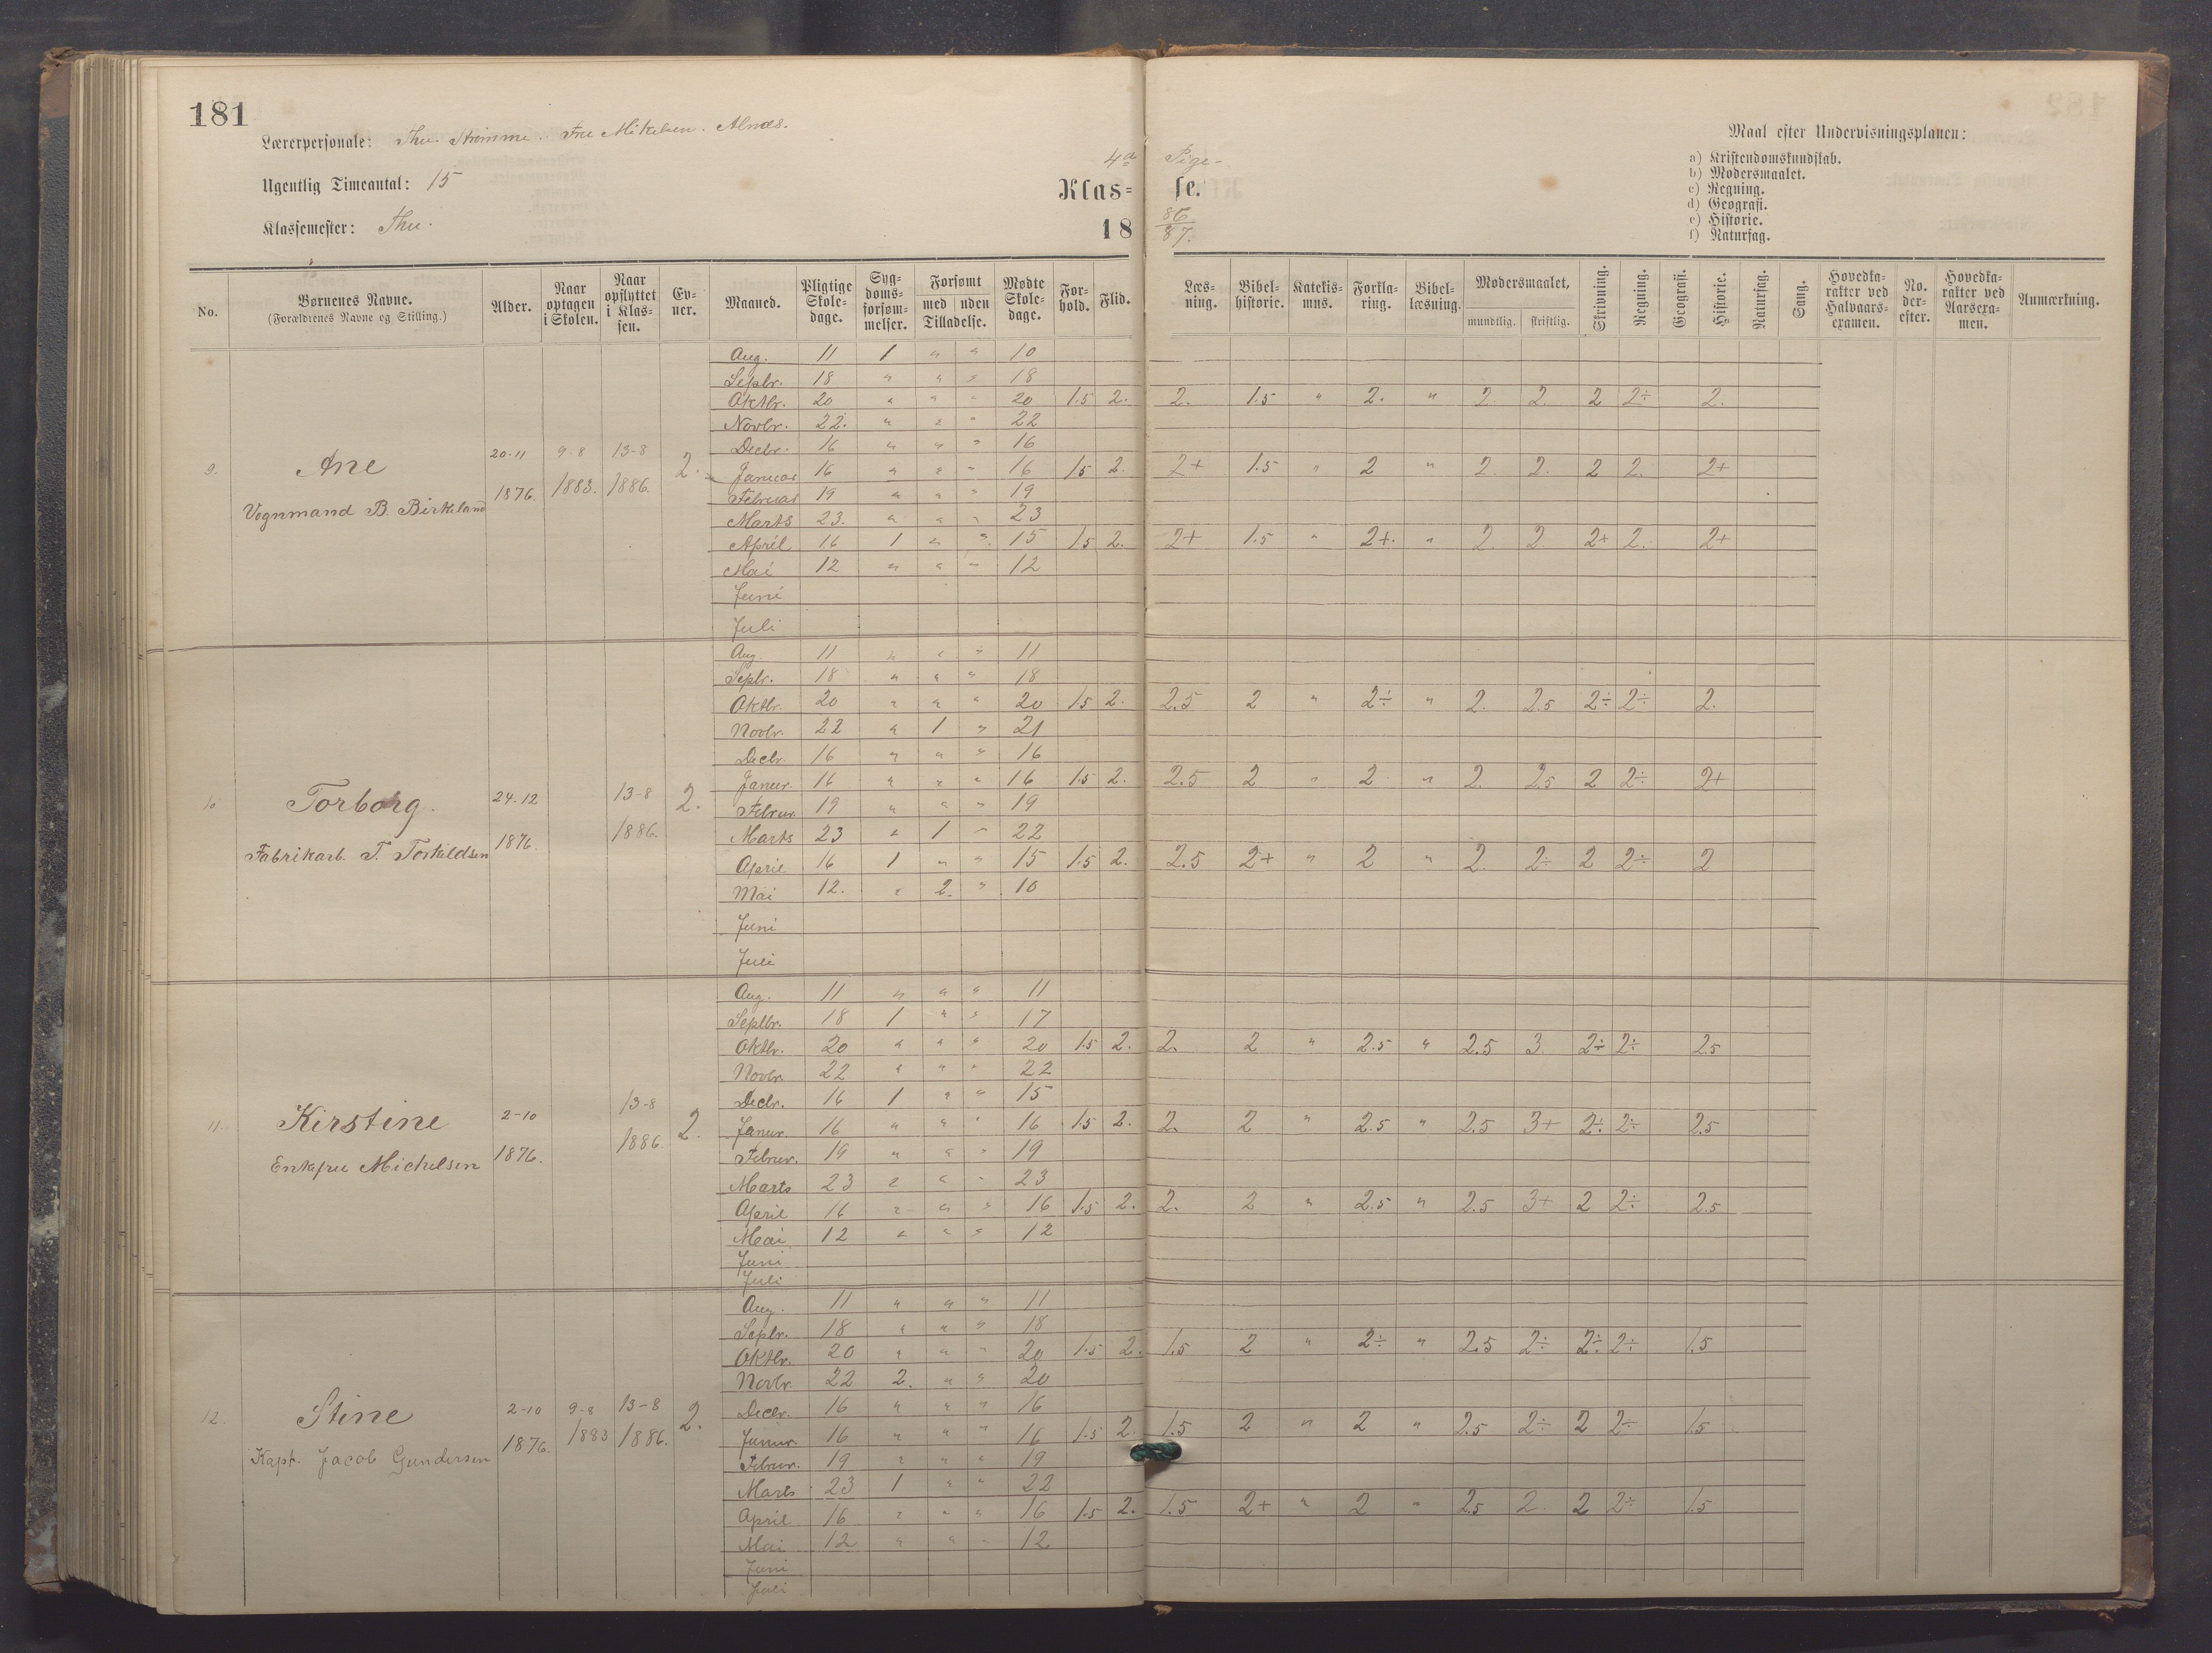 181
Lærerpersonale: Thu. Strømme. Fru Mikelsen. Alnæs.
Ugentlig Timeantal: 15
Klassemester: Thu.
4de Pige-
Klas= se.
18 86/87.
Maal efter Undervisningsplanen:
a) Kristendomskundskab.
b) Modersmaalet.
c) Regning.
d) Geografi.
e) Historie.
f) Naturfag.
No. | Børnenes Navne. (Forældrenes Navne og Stilling.) | Alder. | Naar optagen i Skolen. | Naar opflyttet i Klassen. | Evner. | Maaned. | Pligtige Skoledage. | Sygdomsforsømmelser. | Forsømt med uden Tilladelse. | Mødte Skoledage. | Forhold. | Flid. | Læsning. | Bibelhistorie. | Katekismus. | Forklaring. | Bibellæsning. | Modersmaalet, mundtlig. skriftlig. | Skrivning. | Regning. | Geografi. | Historie. | Naturfag. | Sang. | Hovedkarakter ved Halvaarsexamen. | No. derefter. | Hovedkarakter ved Aarsexamen. | Anmærkning.
9. Ane
Vognmand B. Birkeland
20-11 1876. 9-8 1883. 13-8 1886. 2.
Aug. 11 1 " " 10
Septbr. 18 " " " 18
Oktbr. 20 " " " 20 1.5 2. 2. 1.5 " 2. " 2. 2. 2 2÷ 2.
Novbr. 22. " " " 22
Decbr. 16 " " " 16
Januar 16 " " " 16 1.5 2. 2+ 1.5 " 2 " 2. 2. 2 2. 2+
Februar 19 " " " 19
Marts 23. " " " 23
April 16 1 " " 15 1.5 2. 2+ 1.5 " 2+. " 2. 2. 2+ 2. 2+
Mai 12 " " " 12
Juni
Juli
10 Torborg.
Fabrikarb. T. Torkildsen
24-12 1876. 13-8 1886. 2.
Aug. 11 " " " 11
Septr. 18 " " " 18
Oktbr. 20 " " " 20 1.5 2. 2.5 2 " 2÷ " 2. 2.5 2÷ 2÷ 2.
Novbr. 22 " 1 " 21
Decbr. 16 " " " 16
Januar. 16 " " " 16 1.5 2. 2.5 2 " 2 " 2. 2.5 2 2÷ 2+
Februr. 19 " " " 19
Marts 23 " 1 " 22
April 16 1 " " 15 1.5 2. 2.5 2+ " 2 " 2. 2÷ 2 2÷ 2
Mai 12. " 2. " 10
Juni
Juli
11. Kirstine
Enkefru Michelsen
2-10 1876. 13-8 1886. 2.
Aug. 11 " " " 11
Septbr. 18 1 " " 17
Oktbr. 20 " " " 20 1.5 2. 2. 2 " 2.5 " 2.5 3. 2÷ 2÷ 2.5
Novbr. 22 " " " 22
Decbr. 16 1 " " 15
Januar. 16 " " " 16 1.5 2. 2. 2 " 2.5 " 2.5 3+ 2÷ 2÷ 2.5
Februr. 19 " " " 19
Marts 23 " " " 23
April 16 " " " 16 1.5 2. 2. 2 " 2.5 " 2.5 3+ 2 2÷ 2.5
Mai 12 " " " 12
Juni
Juli
12. Stine
Kapt. Jacob Gundersen
2-10 1876. 9-8 1883 13-8 1886. 2.
Aug. 11 " " " 11
Septr. 18 " " " 18
Oktbr. 20 " " " 20 1.5 2. 1.5 2 " 2÷ " 2.5 2÷ 2÷ 2÷ 1.5
Novbr. 22 2. " " 20
Decbr. 16 " " " 16
Januar. 16 " " " 16 1.5 2. 1.5 2 " 2 " 2.5 2÷ 2 2÷ 1.5
Februr. 19 " " " 19
Marts 23 1 " " 22
April 16 " " " 16 1.5 2. 1.5 2+ " 2 " 2.5 2. 2 2÷ 1.5
Mai 12 " " " 12
Juni
Juli